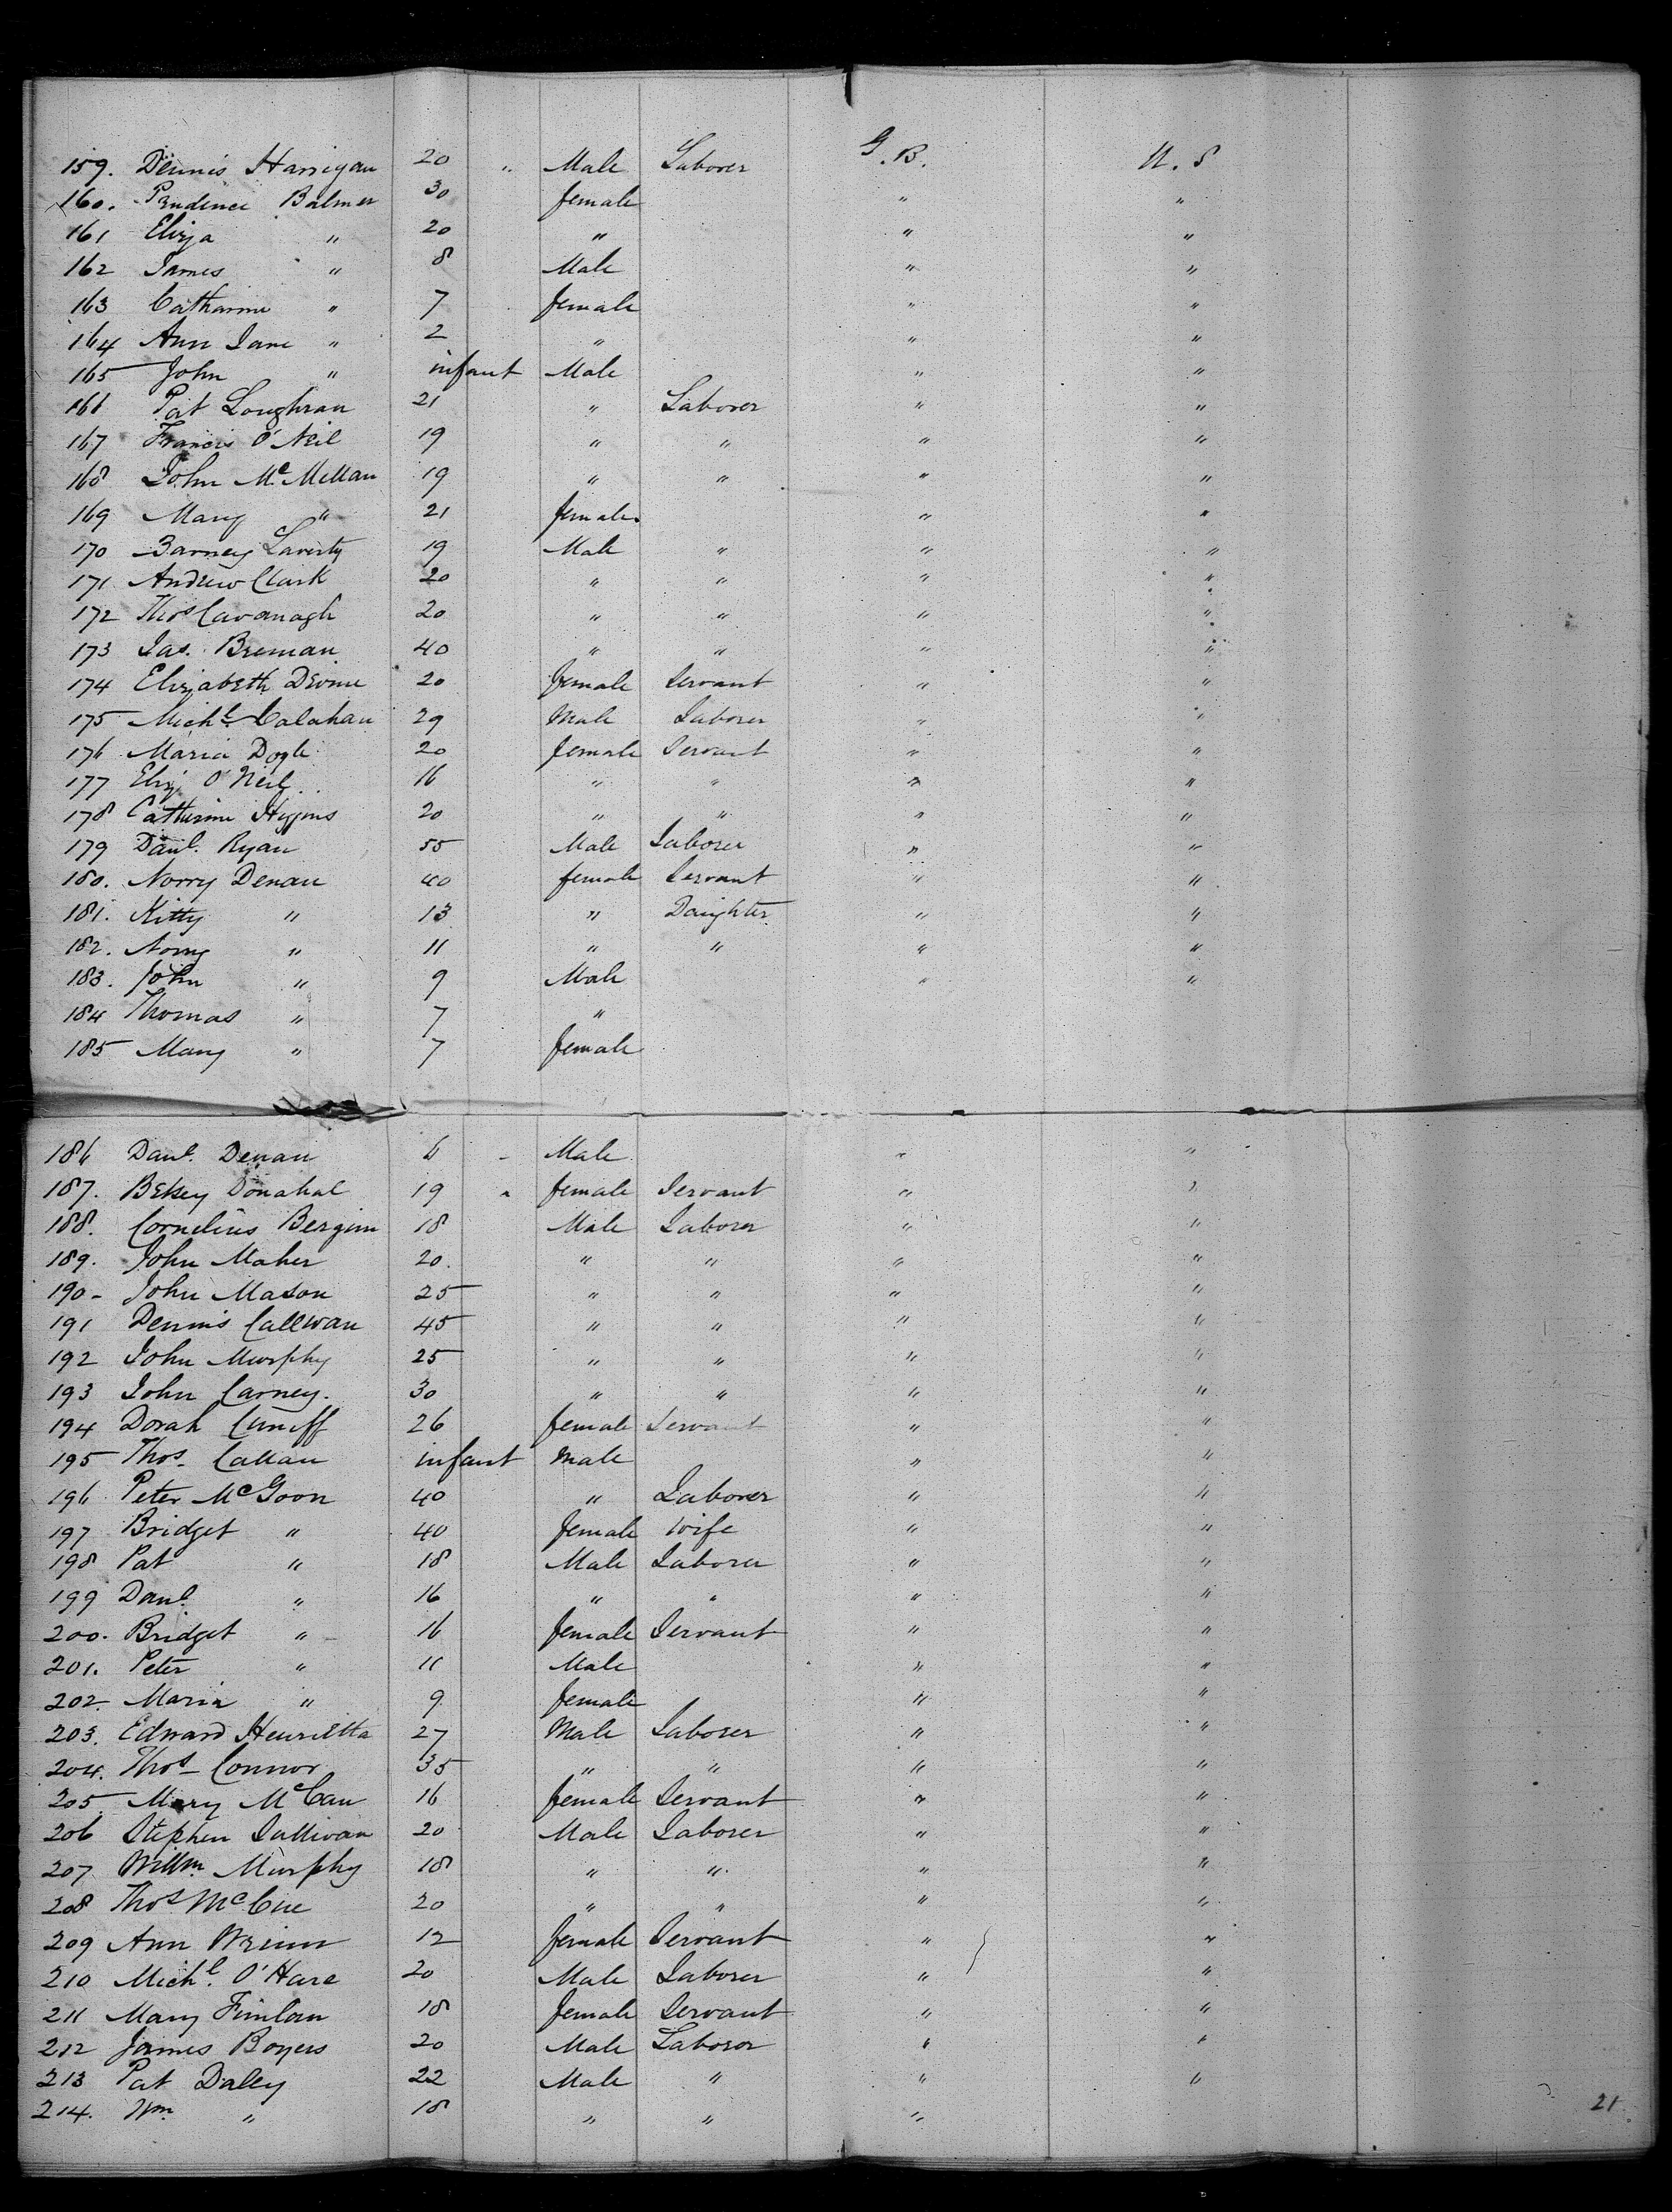 159. Dennis Harrigan 20 " Male Laborer G.B. U.S
160. Prudence Balmer 30 female " "
161 Eliza " 20 " " "
162 James " 8 Male " "
163 Catharine " 7 female " "
164 Ann Jane " 2 " " "
165 John " infant Male " "
166 Pat Loughran 21 " Laborer " "
167 Francis O'Neil 19 " " " "
168 John McMillan 19 " " " "
169 Mary " 21 female " "
170 Barney Laverty 19 Male " " "
171 Andrew Clark 20 " " " "
172 Thos Cavanagh 20 " " " "
173 Jas. Brennan 40 " " " "
174 Elizabeth Devine 20 female Servant " "
175 Michl. Calahan 29 Male Laborer " "
176 Maria Dogle 20 female Servant " "
177 Eliz. O'Neil 16 " " " "
178 Catherine Higgins 20 " " " "
179 Danl. Ryan 55 Male Laborer " "
180. Norry Denau 40 female Servant " "
181. Kitty " 13 " Daughter " "
182. Norry " 11 " " " "
183. John " 9 Male " "
184 Thomas " 7 "
185 Mary " 7 female
186 Danl. Denau 6 - Male " "
187. Betsey Donahal 19 " female Servant " "
188. Cornelius Bergin 18 Male Laborer " "
189. John Maher 20. " " " "
190- John Mason 25 " " " "
191 Dennis Callwan 45 " " " "
192 John Murphy 25 " " " "
193 John Carney. 30 " " " "
194 Dorah Cuniff 26 female Servant " "
195 Thos. Callan infant Male " "
196 Peter McGoon 40 " Laborer " "
197 Bridget " 40 female Wife " "
198 Pat " 18 Male Laborer " "
199 Danl. " 16 " " " "
200. Bridget " 16 female Servant " "
201. Peter " 11 Male " "
202. Maria " 9 female " "
203. Edward Henrietta 27 Male Laborer " "
204. Thos Connor 35 " " " "
205 Mary McCan 16 female Servant " "
206 Stephen Sullivan 20 Male Laborer " "
207 Willm. Murphy 18 " " " "
208 Thos McCue 20 " " " "
209 Ann Wrinn 12 female Servant " "
210 Michl. O'Hare 20 Male Laborer " "
211 Mary Finlan 18 female Servant " "
212 James Boyers 20 Male Laboror " "
213 Pat Daley 22 Male " " "
214. Wm. " 18 " " "
21